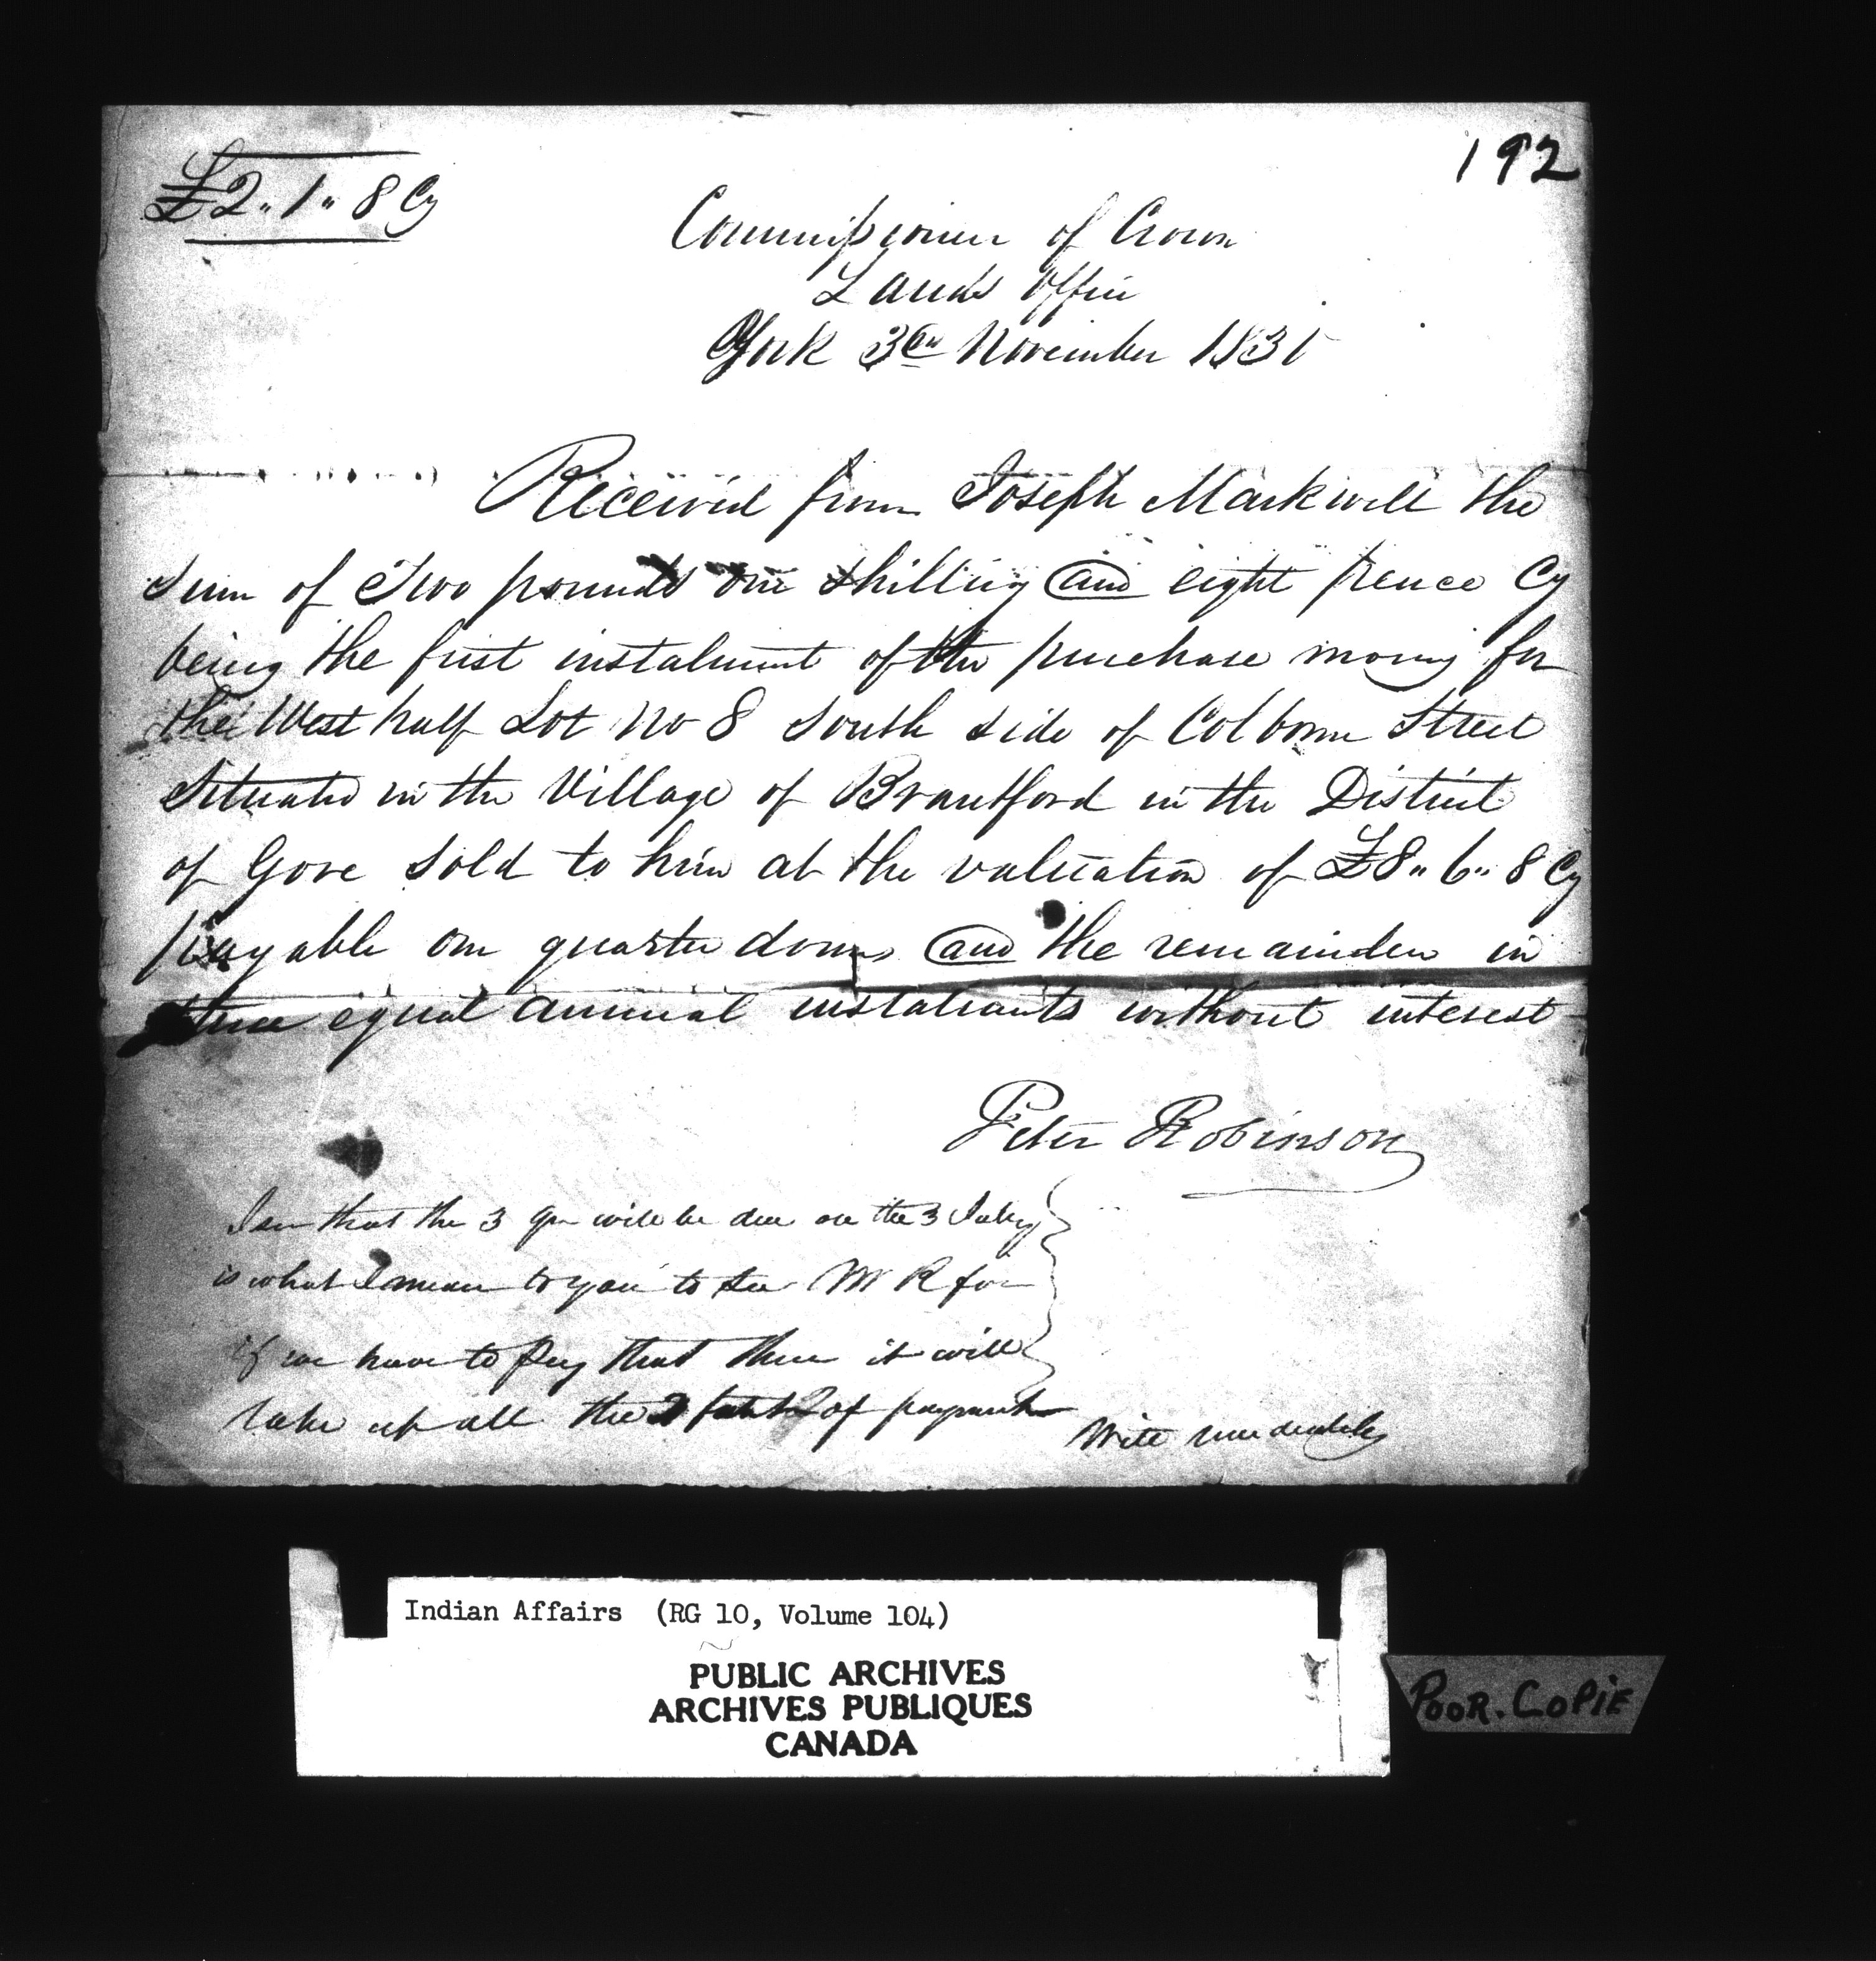 192
£2„1„8 Cy
Commissioner of Crown
Lands Office
York 3rd November 1831
Received from Joseph Markwell the
Sum of Two pounds one shilling and eight pence Cy
being the first instalment of the purchase money for
the West half Lot No 8 South side of Colborne Street
Situated in the Village of Brantford in the District
of Gore Sold to him at the valuation of £8„6„8 Cy
payable one quarter down and the remainder in
three equal annual instalments without interest
Peter Robinson
that the 3 will be due on the 3 July
is what I mean to you to see Mr R for
if we have to pay that then it will
take up all the 2 of payment
Write immediately
Indian Affairs (RG 10, Volume 104)
PUBLIC ARCHIVES
ARCHIVES PUBLIQUES
CANADA
POOR. COPIE